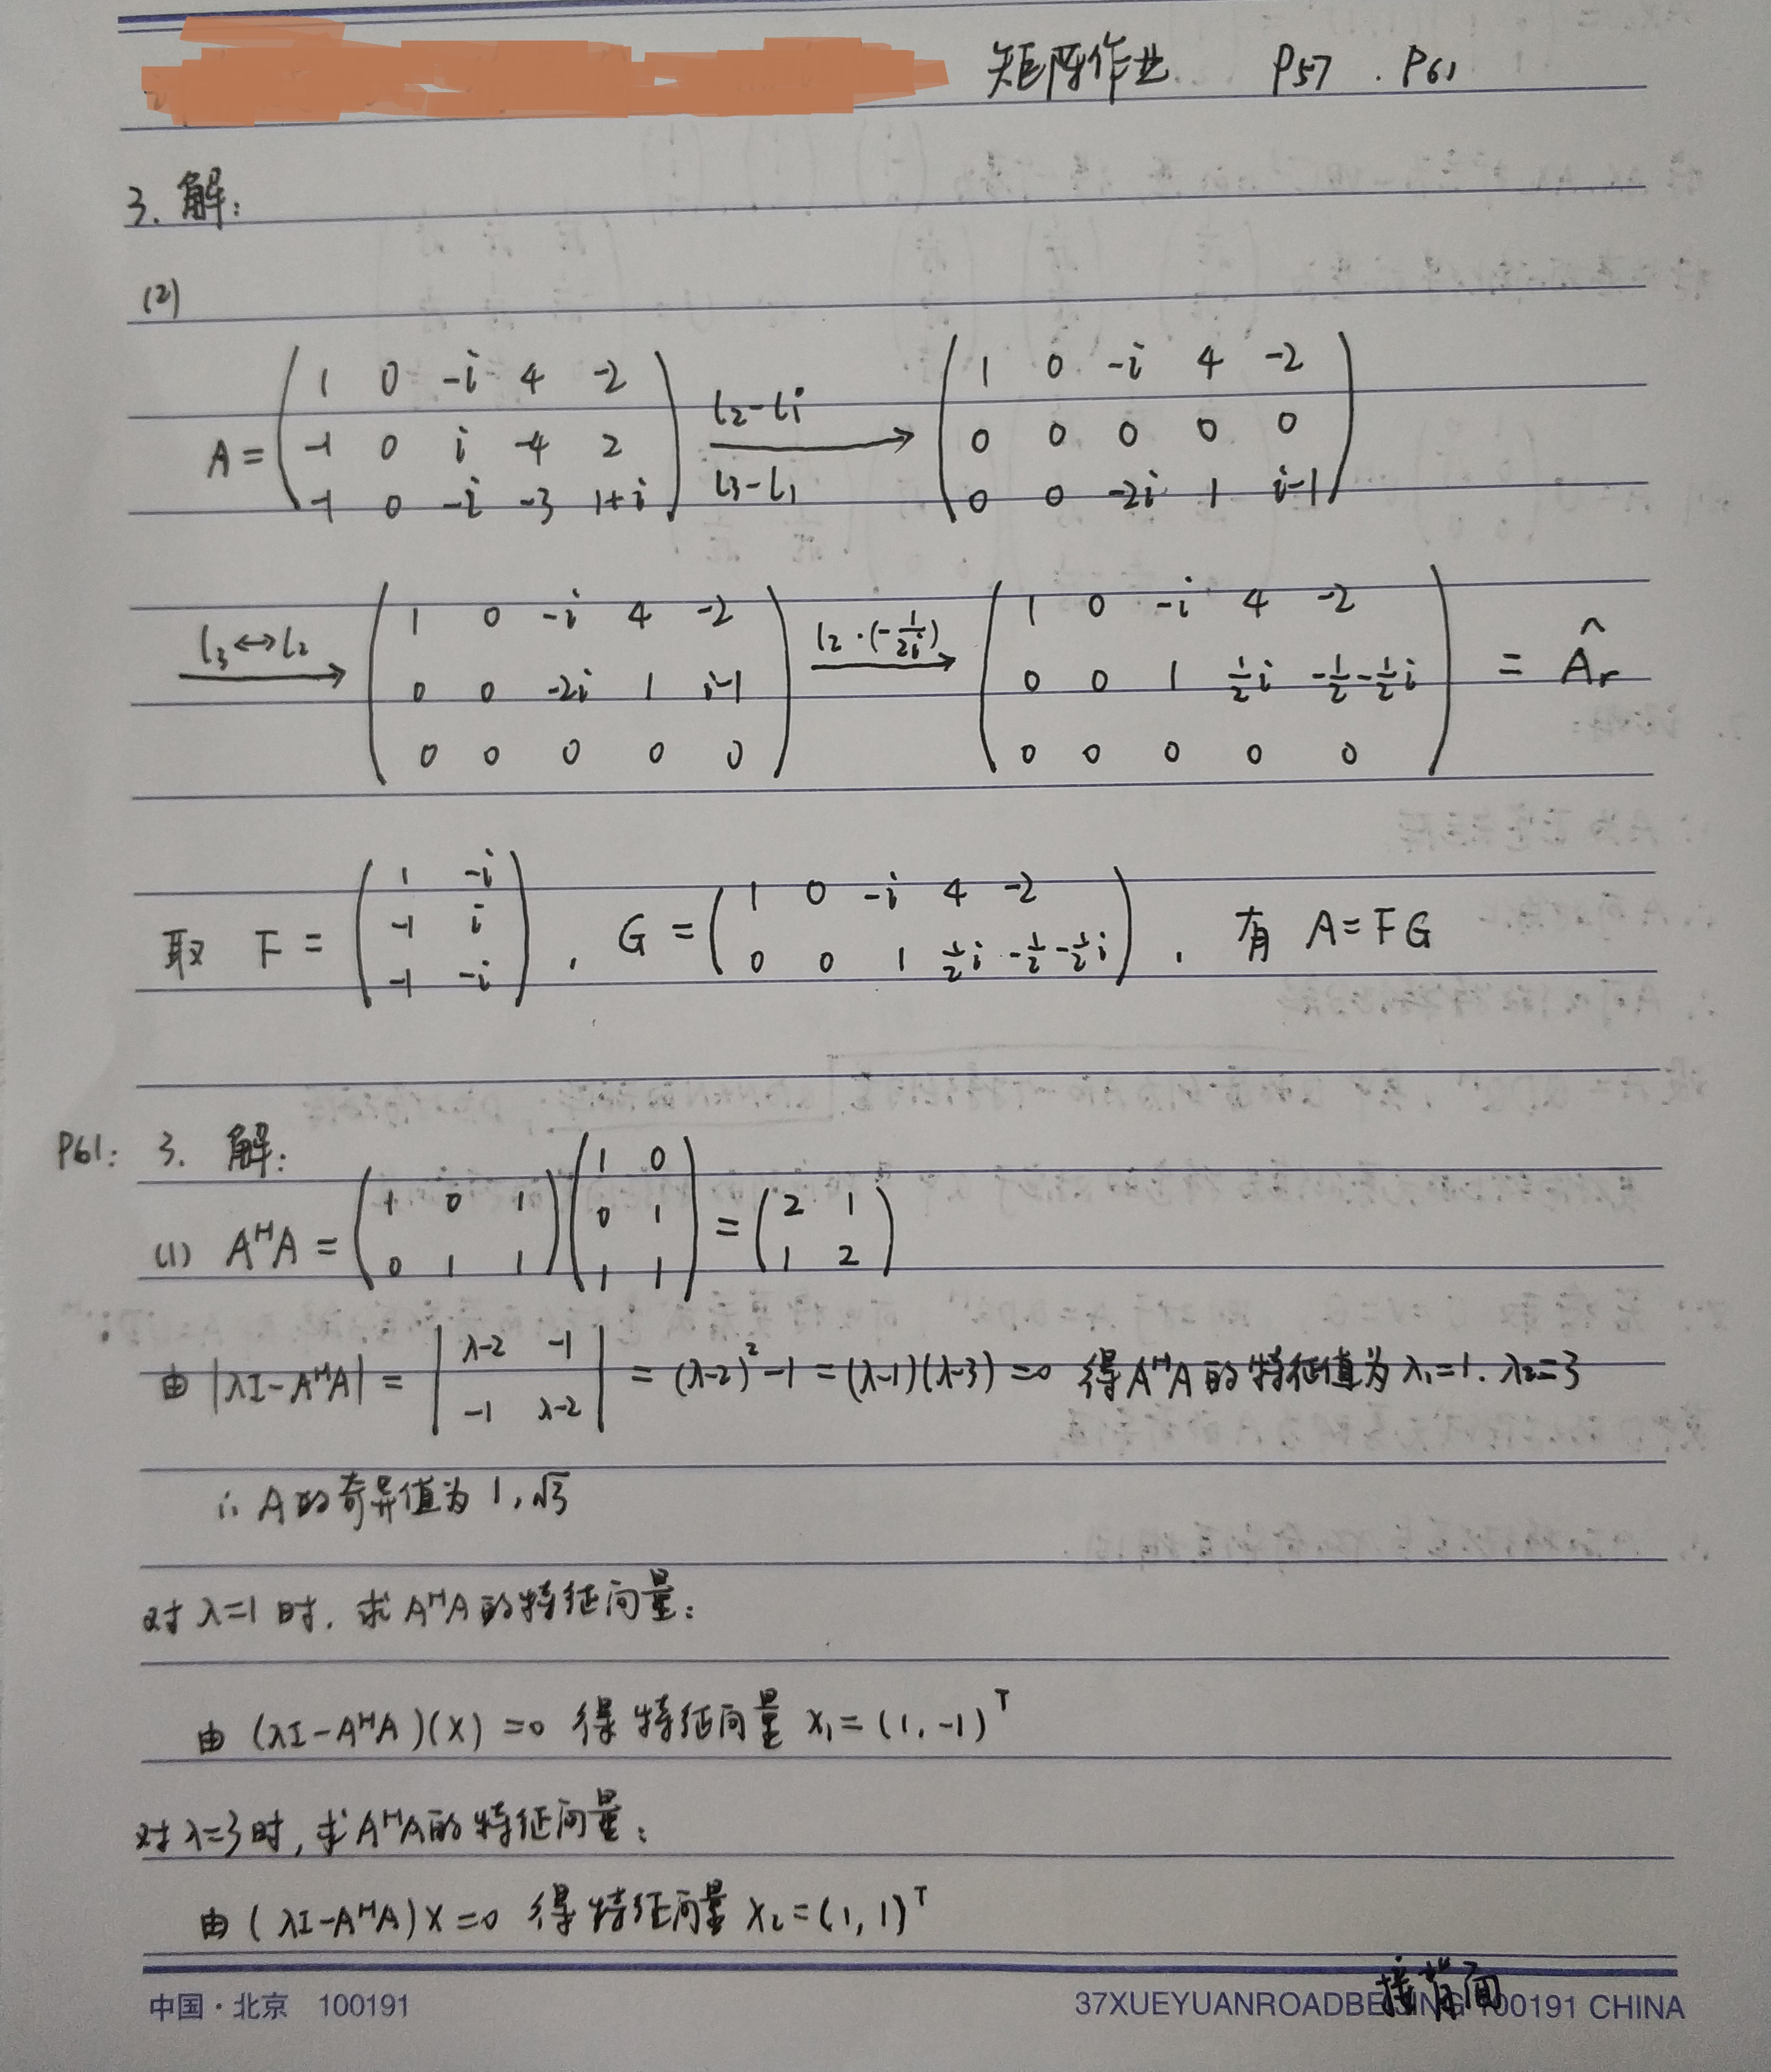 矩阵作业 P57 . P61
3. 解:
(2)
A = ( 1 0 -i 4 -2 ; -1 0 i -4 2 ; -1 0 -i -3 1+i ) l2-l1 l3-l1 → ( 1 0 -i 4 -2 ; 0 0 0 0 0 ; 0 0 -2i 1 i-1 )
l3↔l2 → ( 1 0 -i 4 -2 ; 0 0 -2i 1 i-1 ; 0 0 0 0 0 ) l2·(-1/2i) → ( 1 0 -i 4 -2 ; 0 0 1 1/2 i -1/2-1/2 i ; 0 0 0 0 0 ) = Âr
取 F = ( 1 -i ; -1 i ; -1 -i ) , G = ( 1 0 -i 4 -2 ; 0 0 1 1/2 i -1/2-1/2 i ) , 有 A=FG
P61: 3. 解:
(1) AᴴA = ( 1 0 1 ; 0 1 1 )( 1 0 ; 0 1 ; 1 1 ) = ( 2 1 ; 1 2 )
由 |λI-AᴴA| = | λ-2 -1 ; -1 λ-2 | = (λ-2)²-1 = (λ-1)(λ-3) =0 得AᴴA的特征值为λ₁=1. λ₂=3
∴ A的奇异值为 1, √3
对λ=1时, 求AᴴA的特征向量:
由 (λI-AᴴA)(X) =0 得特征向量 X₁=(1, -1)ᵀ
对λ=3时, 求AᴴA的特征向量:
由 (λI-AᴴA)X=0 得特征向量 X₂=(1, 1)ᵀ
接背面
中国·北京 100191
37XUEYUANROADBEIJING 100191 CHINA